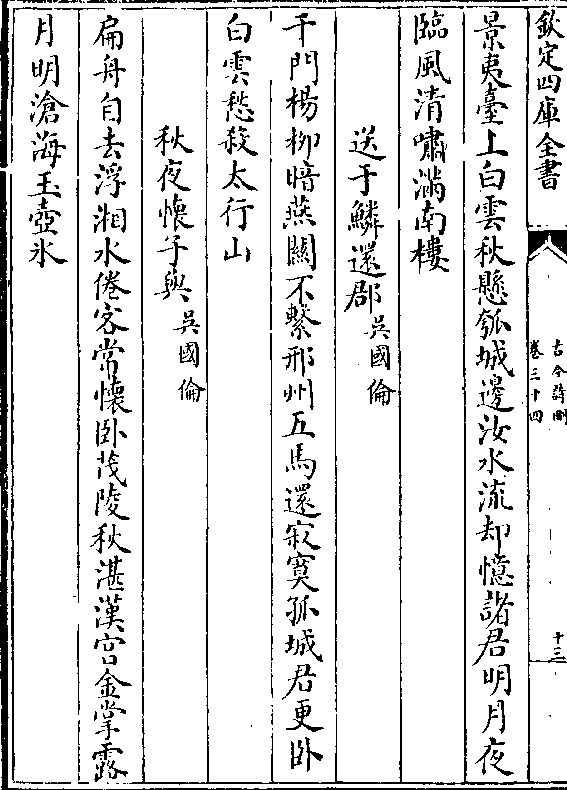 欽定四庫全書
古今詩刪
卷三十四
十三
景夷臺上白雲秋懸瓠城邊汝水流却憶諸君明月夜
臨風清嘯滿南樓
送于鱗還郡吳國倫
千門楊柳暗燕關不繫邢州五馬還寂寞孤城君更卧
白雲愁殺太行山
秋夜懷子與吳國倫
扁舟自去浮湘水倦客常懷卧茂陵秋湛漢宫金掌露
月明滄海玉壺氷